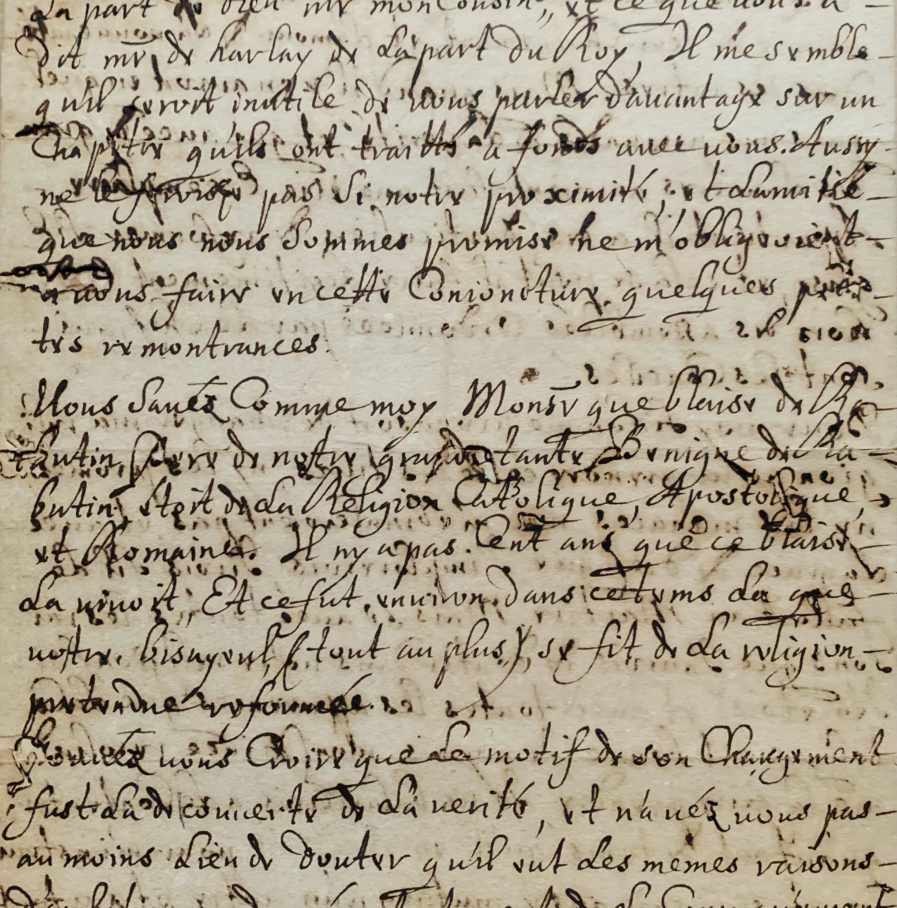 La part de dieu mr mon Cousin, et ce que vous a
dit mr. de harlay de La part du Roy, Il me semble
qu'il seroit inutile de vous parler davantage sur un
Chapitre qu'ils ont traitté a fonds avec vous. Aussy
ne le ferois je pas Si notre proximité, et Lamitié
que nous nous Sommes promise ne m'obligeoient
a vous faire en cette Conioncture quelques
tes remontrances.
Vous Savéz Comme moy Monsr que blaise de Ra
butin, frere de notre grand Benigne de Ra
butin, étoit de La Religion Catolique, Apostolique,
et Romaine. Il ny a pas Cent ans que ce blaise
La vivoit, Et ce fut environ dans ce tems La que
notre bisayeul (tout au plus) se fit de La religion
pretendue reformée.
Pouvéz vous Croire que Le motif de son Changement
fust La decouverte de La verité, et n'avéz vous pas
au moins Lieu de douter qu'il eut Les memes raisons